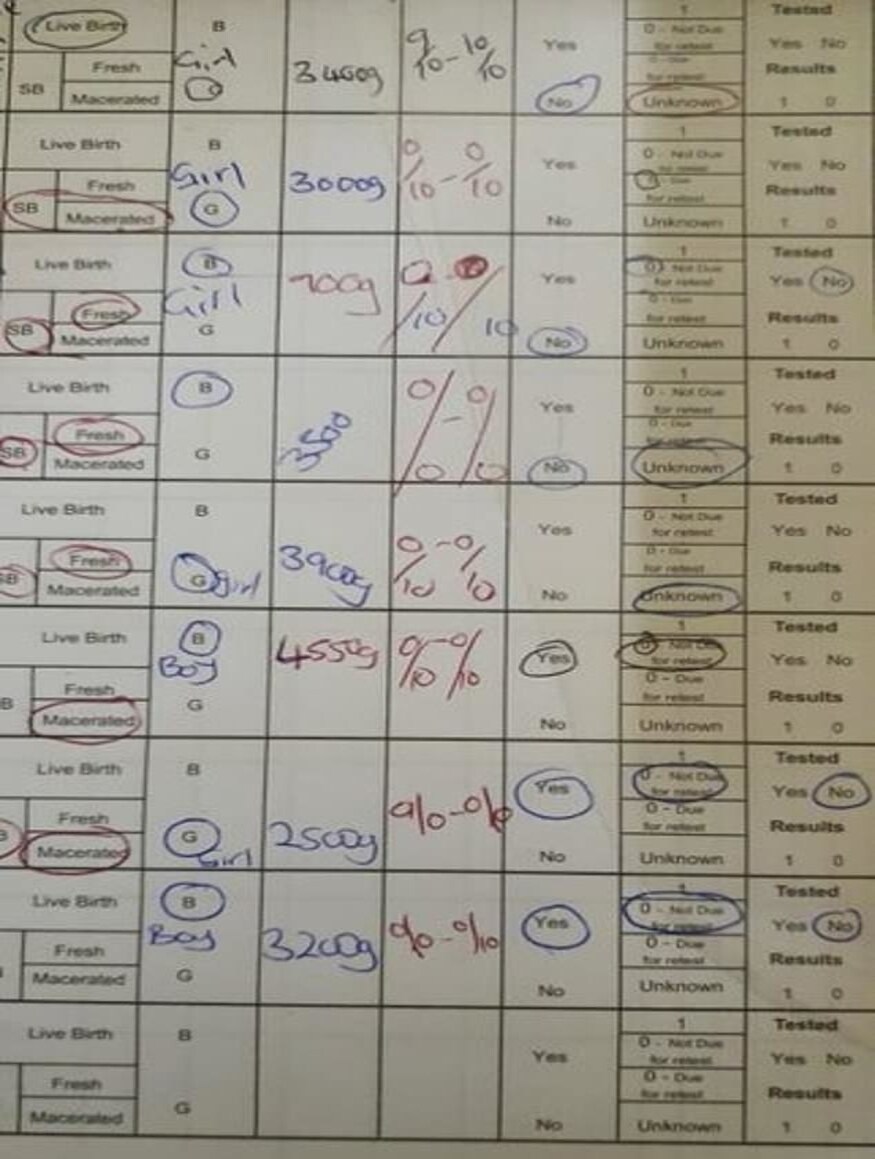 Live Birth B Yes 1 Tested
Girl 3400g 9/10-10/10 0 - Not Due for retest Yes No
SB Fresh 0 - Due for retest Results
Macerated No Unknown 1 0
Live Birth B Yes 1 Tested
Girl 3000g 0/10-0/10 0 - Not Due Yes No
SB Fresh - Due for retest Results
Macerated G No Unknown 1 0
Live Birth B Yes 1 Tested
Girl 700g 0/10 10 0 - Not Due for retest Yes No
SB Fresh 0 - Due for retest Results
Macerated G No Unknown 1 0
Live Birth B Yes 1 Tested
3500 0/0-0/0 0 - Not Due for retest Yes No
SB Fresh 0 - Due for retest Results
Macerated G No Unknown 1 0
Live Birth B Yes 1 Tested
3900g 0/10-0/10 0 - Not Due for retest Yes No
SB Fresh 0 - Due for retest Results
Macerated G girl No Unknown 1 0
Live Birth B Yes 1 Tested
Boy 4550g 0/10-0/10 0 - Not Due for retest Yes No
B Fresh 0 - Due for retest Results
Macerated G No Unknown 1 0
Live Birth B Yes 1 Tested
2500g 0 - Not Due for retest Yes No
Fresh 0 - Due for retest Results
Macerated G Girl No Unknown 1 0
Live Birth B Yes 1 Tested
Boy 3200g 0 - Not Due for retest Yes No
Fresh 0 - Due for retest Results
Macerated G No Unknown 1 0
Live Birth B Yes 1 Tested
0 - Not Due for retest Yes No
Fresh 0 - Due for retest Results
Macerated G No Unknown 1 0